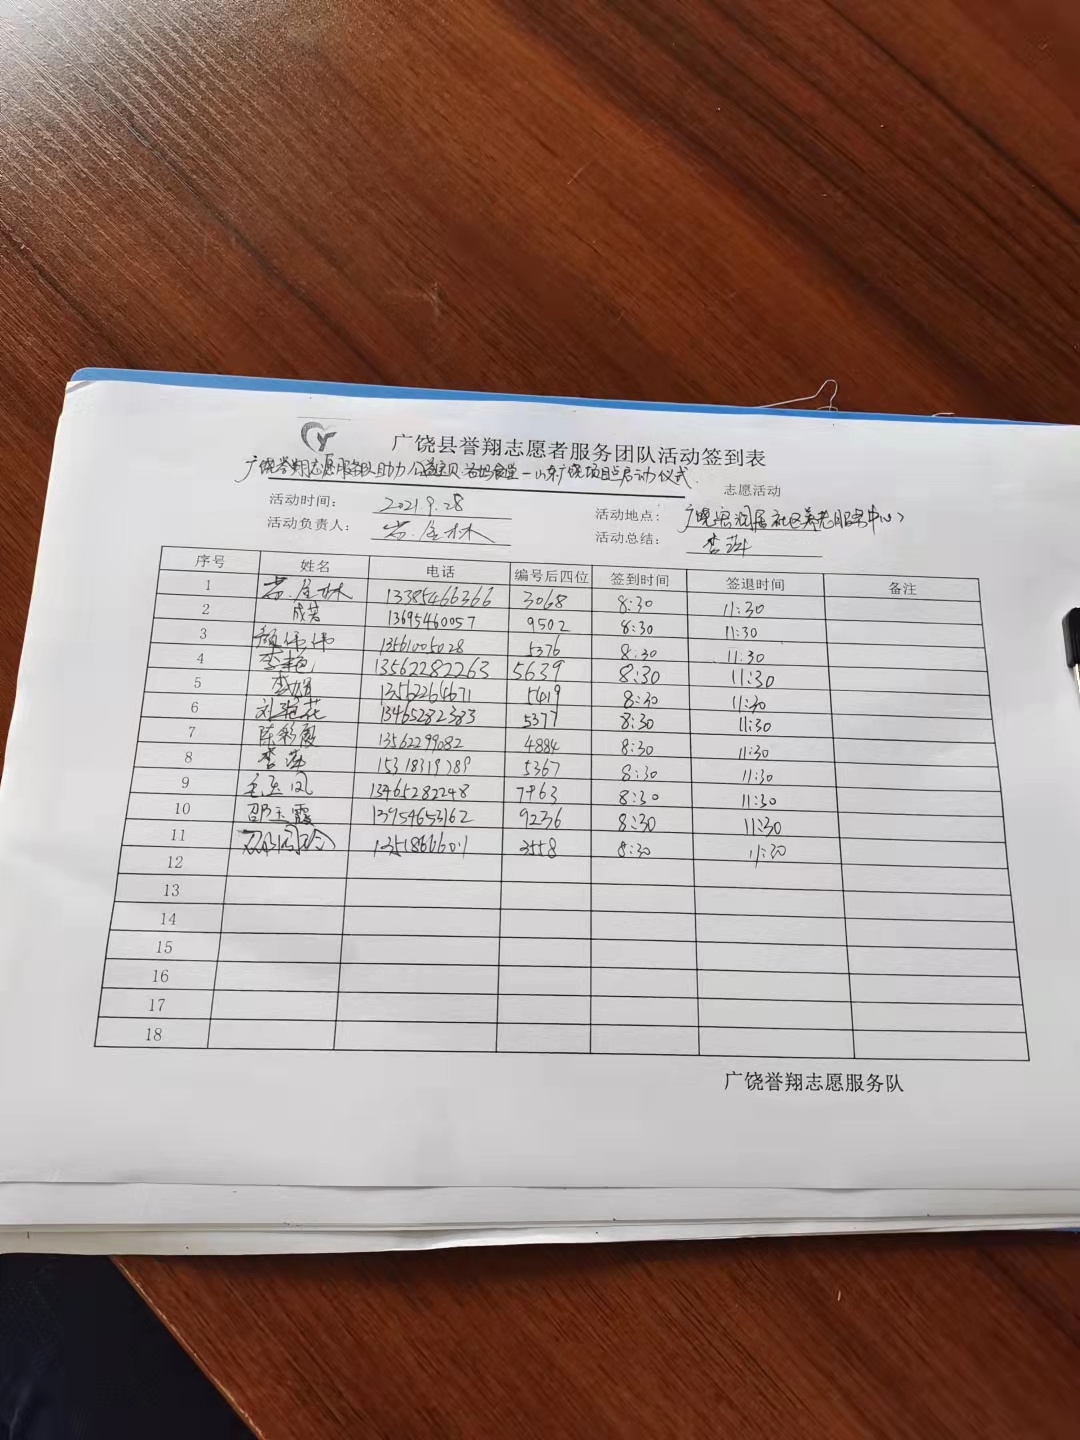 广饶县誉翔志愿者服务团队活动签到表
广饶誉翔志愿服务队助力公益宝贝 爸妈食堂—山东广饶项目点启动仪式 志愿活动
活动时间： 2021 9.28 活动地点： 广饶 社区养老服务中心
活动负责人： 活动总结： 李萍
序号 姓名 电话 编号后四位 签到时间 签退时间 备注
1 13385466366 3068 8:30 11:30
2 成芳 13695460057 9502 8:30 11:30
3 颜伟伟 13561005028 5376 8:30 11:30
4 李艳 13562282263 5639 8:30 11:30
5 李娟 13562264671 5419 8:30 11:30
6 刘艳花 13465282383 5377 8:30 11:30
7 陈彩霞 13562299082 4884 8:30 11:30
8 李萍 15318319789 5367 8:30 11:30
9 毛玉凤 13465282248 7963 8:30 11:30
10 邵玉霞 13954653162 9236 8:30 11:30
11 3558 8:30 11:30
12
13
14
15
16
17
18
广饶誉翔志愿服务队